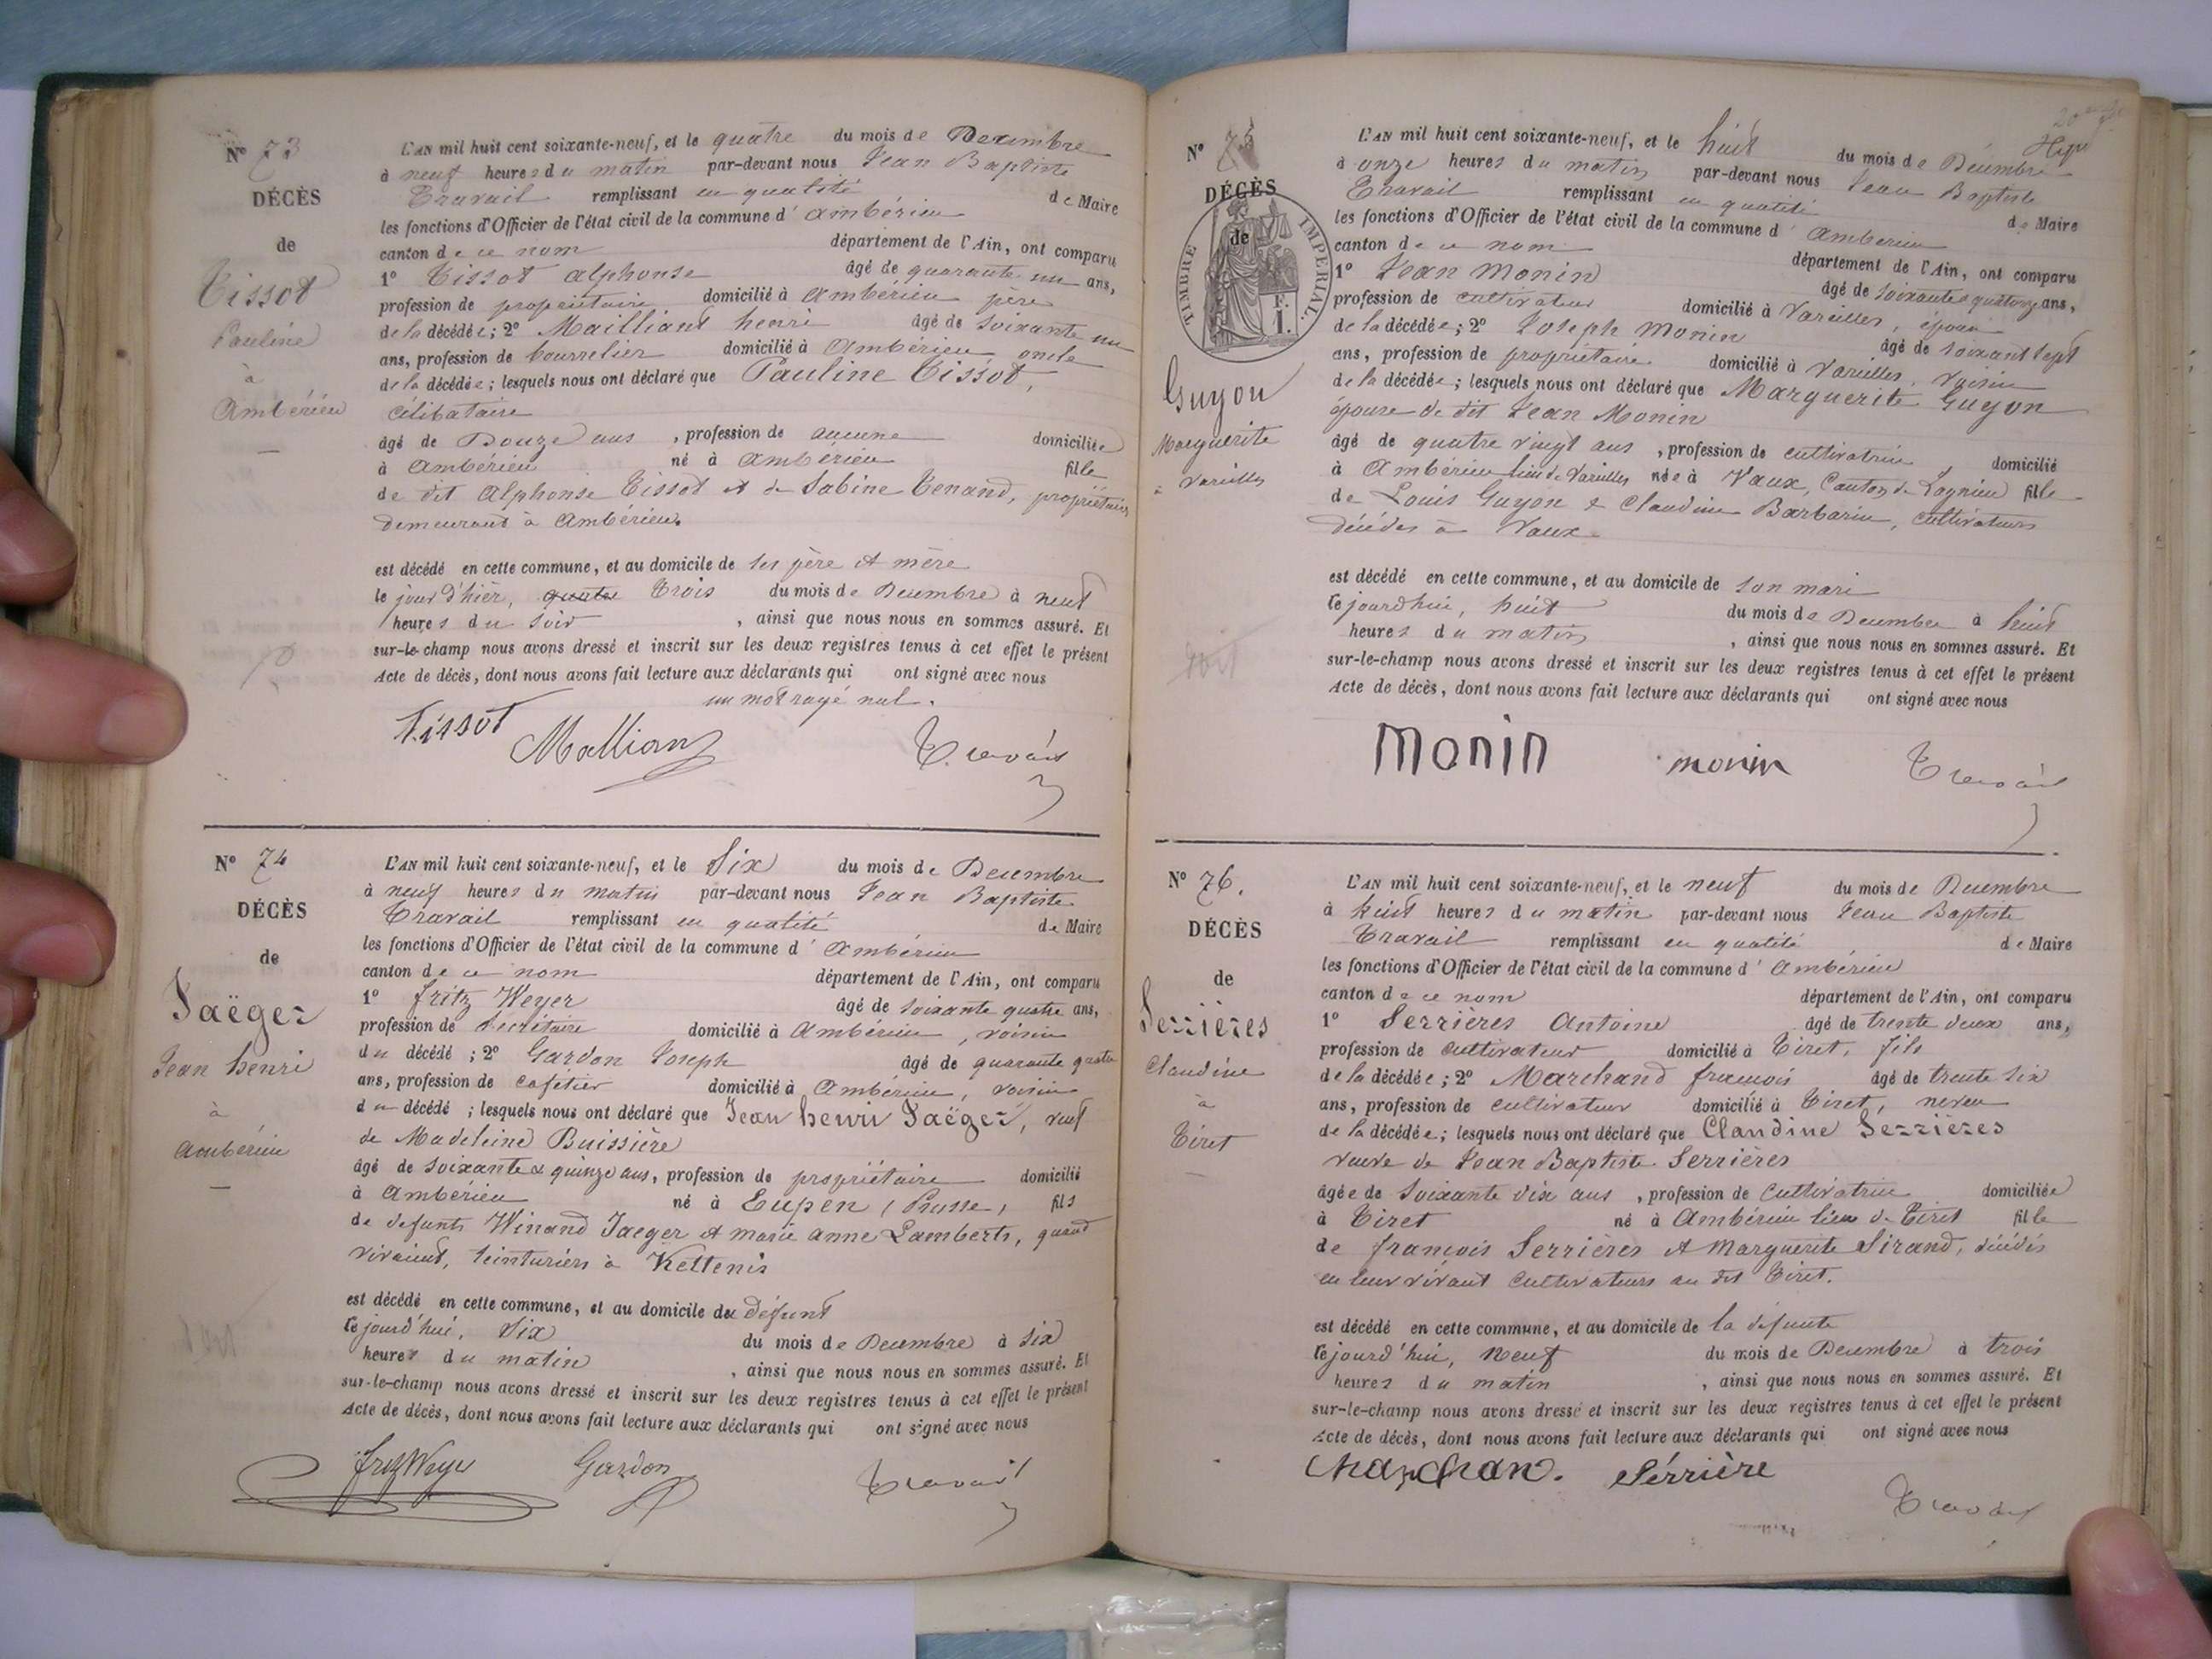 N° 73
DÉCÈS
de
Tissot
Pauline
à
Ambérieu
L'AN mil huit cent soixante-neuf, et le quatre du mois de Décembre
à neuf heures du matin par-devant nous Jean Baptiste
Travail remplissant en qualité de Maire
les fonctions d'Officier de l'état civil de la commune d' Ambérieu
canton de ce nom département de l'Ain, ont comparu
1° Tissot Alphonse âgé de quarante un ans,
profession de propriétaire domicilié à Ambérieu père
de la décédée; 2° Mailliant henri âgé de soixante un
ans, profession de bourrelier domicilié à Ambérieu oncle
de la décédée; lesquels nous ont déclaré que Pauline Tissot,
célibataire
âgé de Douze ans , profession de aucune domiciliée
à Ambérieu né à Ambérieu fille
de dit Alphonse Tissot et de Sabine Tenand, propriétaires
demeurant à Ambérieu.
est décédé en cette commune, et au domicile de ses père et mère
le jour d'hier, quatre Trois du mois de Décembre à neuf
heures du soir , ainsi que nous nous en sommes assuré. Et
sur-le-champ nous avons dressé et inscrit sur les deux registres tenus à cet effet le présent
Acte de décès, dont nous avons fait lecture aux déclarants qui ont signé avec nous
un mot rayé nul.
Tissot Mallian Travail
N° 74
DÉCÈS
de
Jaëger
Jean henri
à
Ambérieu
L'AN mil huit cent soixante-neuf, et le Six du mois de Décembre
à neuf heures du matin par-devant nous Jean Baptiste
Travail remplissant en qualité de Maire
les fonctions d'Officier de l'état civil de la commune d' Ambérieu
canton de ce nom département de l'Ain, ont comparu
1° fritz Weyer âgé de soixante quatre ans,
profession de Secrétaire domicilié à Ambérieu, voisin
du décédé ; 2° Gardon Joseph âgé de quarante quatre
ans, profession de cafetier domicilié à Ambérieu, voisin
du décédé ; lesquels nous ont déclaré que Jean henri Jaëger, veuf
de Madeleine Buissière
âgé de soixante & quinze ans, profession de propriétaire domicilié
à Ambérieu né à Eupen (Prusse) fils
de defunts Winand Jaeger et marie anne Lamberts, quand
vivaient, teinturiers à Kettenis
est décédé en cette commune, et au domicile du défunt
cejourd'hui, Six du mois de Décembre à six
heures du matin , ainsi que nous nous en sommes assuré. Et
sur-le-champ nous avons dressé et inscrit sur les deux registres tenus à cet effet le présent
Acte de décès, dont nous avons fait lecture aux déclarants qui ont signé avec nous
fritz Weyer Gardon Travail
N° 75
DÉCÈS
de
TIMBRE IMPERIAL
F. 1.
Guyon
Marguerite
à Vareilles
L'AN mil huit cent soixante-neuf, et le huit du mois de Décembre
à onze heures du matin par-devant nous Jean Baptiste
Travail remplissant en qualité de Maire
les fonctions d'Officier de l'état civil de la commune d' Ambérieu
canton de ce nom département de l'Ain, ont comparu
1° Jean Monin âgé de soixante quatorze ans,
profession de cultivateur domicilié à Vareilles, époux
de la décédée; 2° Joseph Monin âgé de soixante sept
ans, profession de propriétaire domicilié à Vareilles, voisin
de la décédée; lesquels nous ont déclaré que Marguerite Guyon
épouse de dit Jean Monin
âgé de quatre vingt ans , profession de cultivatrice, domicilié
à Ambérieu lieu de Vareilles née à Vaux, Canton de Lagnieu fille
de Louis Guyon & Claudine Barbarin, cultivateurs
décédés à Vaux.
est décédé en cette commune, et au domicile de son mari
cejourd'hui, huit du mois de Décembre à huit
heures du matin , ainsi que nous nous en sommes assuré. Et
sur-le-champ nous avons dressé et inscrit sur les deux registres tenus à cet effet le présent
Acte de décès, dont nous avons fait lecture aux déclarants qui ont signé avec nous
Monin monin Travail
N° 76.
DÉCÈS
de
Serrières
Claudine
à
Tiret
L'AN mil huit cent soixante-neuf, et le neuf du mois de Décembre
à huit heures du matin par-devant nous Jean Baptiste
Travail remplissant en qualité de Maire
les fonctions d'Officier de l'état civil de la commune d' Ambérieu
canton de ce nom département de l'Ain, ont comparu
1° Serrières Antoine âgé de trente deux ans,
profession de cultivateur domicilié à Tiret, fils
de la décédée; 2° Marchand françois âgé de trente six
ans, profession de cultivateur domicilié à Tiret, neveu
de la décédée; lesquels nous ont déclaré que Claudine Serrières
veuve de Jean Baptiste Serrières
âgée de soixante dix ans , profession de Cultivatrice domiciliée
à Tiret né à Ambérieu lieu de Tiret fille
de françois Serrières et Marguerite Sirand, décédés
en leur vivant cultivateurs au dit Tiret.
est décédé en cette commune, et au domicile de la défunte
cejourd'hui, neuf du mois de Décembre à trois
heures du matin , ainsi que nous nous en sommes assuré. Et
sur-le-champ nous avons dressé et inscrit sur les deux registres tenus à cet effet le présent
Acte de décès, dont nous avons fait lecture aux déclarants qui ont signé avec nous
Marchan. Sérrière Travail